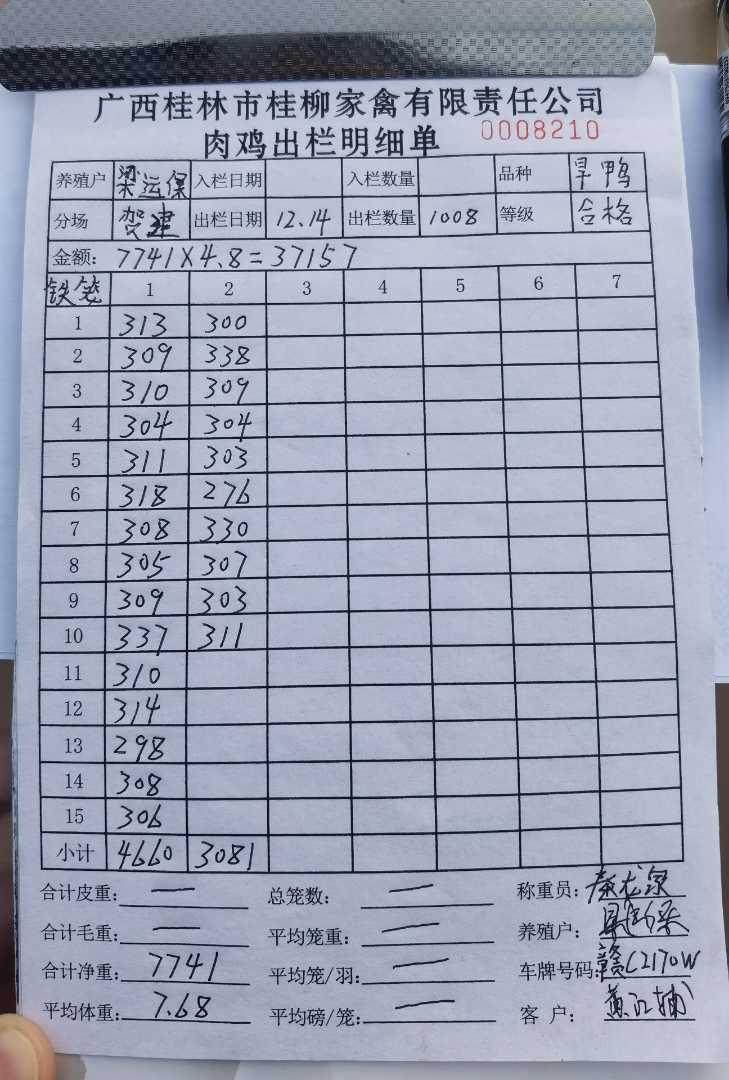 广西桂林市桂柳家禽有限责任公司
肉鸡出栏明细单 0008210
养殖户 梁运保 入栏日期 入栏数量 品种 旱鸭
分场 贺建 出栏日期 12.14 出栏数量 1008 等级 合格
金额: 7741×4.8=37157
铁笼 1 2 3 4 5 6 7
1 313 300
2 309 338
3 310 309
4 304 304
5 311 303
6 318 276
7 308 330
8 305 307
9 309 303
10 337 311
11 310
12 314
13 298
14 308
15 306
小计 4660 3081
合计皮重: — 总笼数: — 称重员: 秦龙
合计毛重: — 平均笼重: — 养殖户:
合计净重: 7741 平均笼/羽: — 车牌号码: 赣C2170W
平均体重: 7.68 平均磅/笼: — 客 户: 黄